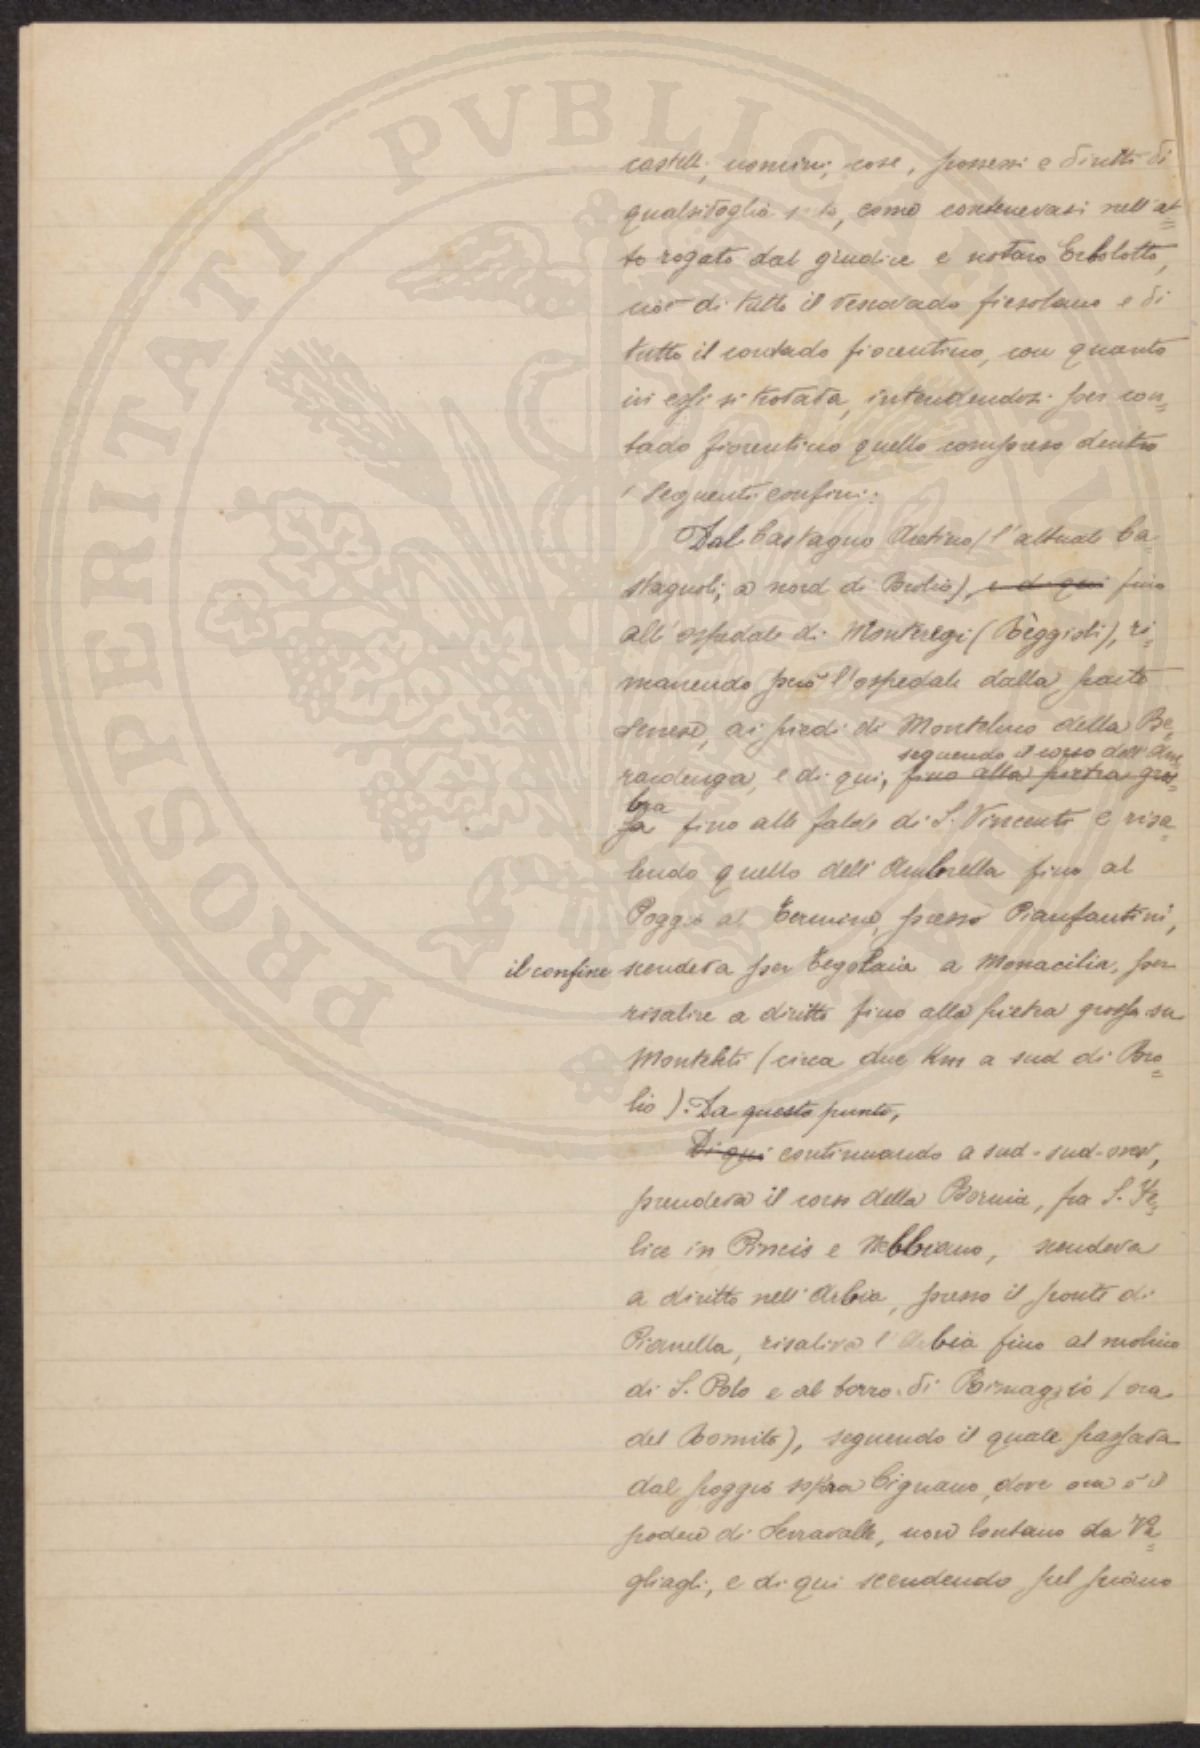 castelli, uomini, cose, possessi e diritti di
qualsivoglia sorta, come contenevasi nell'at=
to rogato dal giudice e notaro Erbolotto,
cioè di tutto il vescovado fiesolano e di
tutto il contado fiorentino, con quanto
in essi si trovava, intendendosi per con=
tado fiorentino quello compreso dentro
i seguenti confini:
Dal Castagno Aretino (l'attuale Ca=
stagnoli, a nord di Brolio), e di qui fino
all'ospedale di Monteregi (Reggioli), ri=
manendo però l'ospedale dalla parte
senese, ai piedi di Monteluco della Be=
seguendo il corso dell'Am
rardenga, e di qui, fino alla pietra gros=
bra
sa fino alle falde di S. Vincenti e risa=
lendo quello dell'Ambrella fino al
Poggio al Termine, presso Pianfantini,
il confine scendeva per Tegolaia a Monacilia, per
risalire a diritto fino alla pietra grossa su
Monteliti (circa due Km a sud di Bro=
lio). Da questo punto,
Di qui continuando a sud-sud-ovest,
prendeva il corso della Bornia, fra S. Fe=
lice in Pincis e Nebbiano, scendeva
a diritto nell'Arbia, presso il ponte di
Pianella, risaliva l'Arbia fino al molino
di S. Polo e al borro di Rimaggio (ora
del Romito), seguendo il quale passava
dal poggio sopra Cignano, dove ora è il
podere di Serravalle, non lontano da Va=
gliagli, e di qui scendendo pel piano